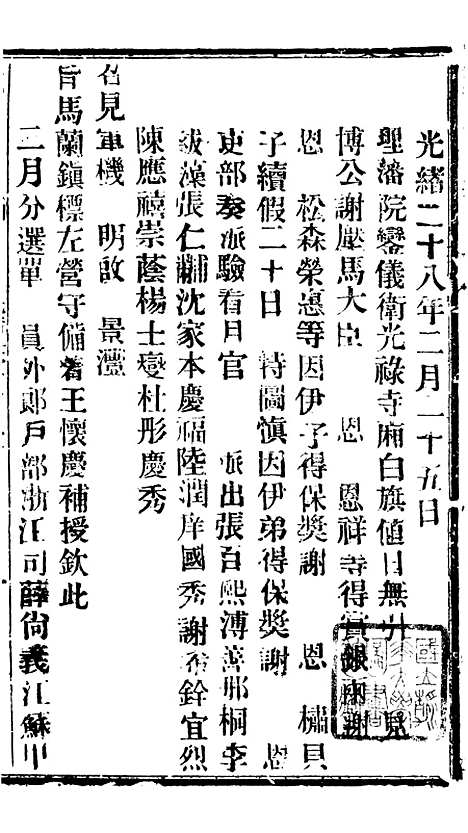 光緒二十八年二月二十五日
理藩院鑾儀衛光祿寺廂白旗値日無引　見
博公謝壓馬大臣　恩　恩祥等得賞銀兩謝
恩　松森榮惠等因伊子得保獎謝　恩　櫹貝
子續假二十日　特圖愼因伊弟得保獎謝　恩
吏部奏派驗看月官　派出張百熙溥善那桐李
紱藻張仁黼沈家本慶福陸潤庠國秀謝希銓宜烈
陳應禧崇蔭楊士燮杜彤慶秀
召見軍機　明啟　景灃
旨馬蘭鎭標左營守備着王懷慶補授欽此
二月分選單　員外郎戶部浙江司薛尙義江蘇甲